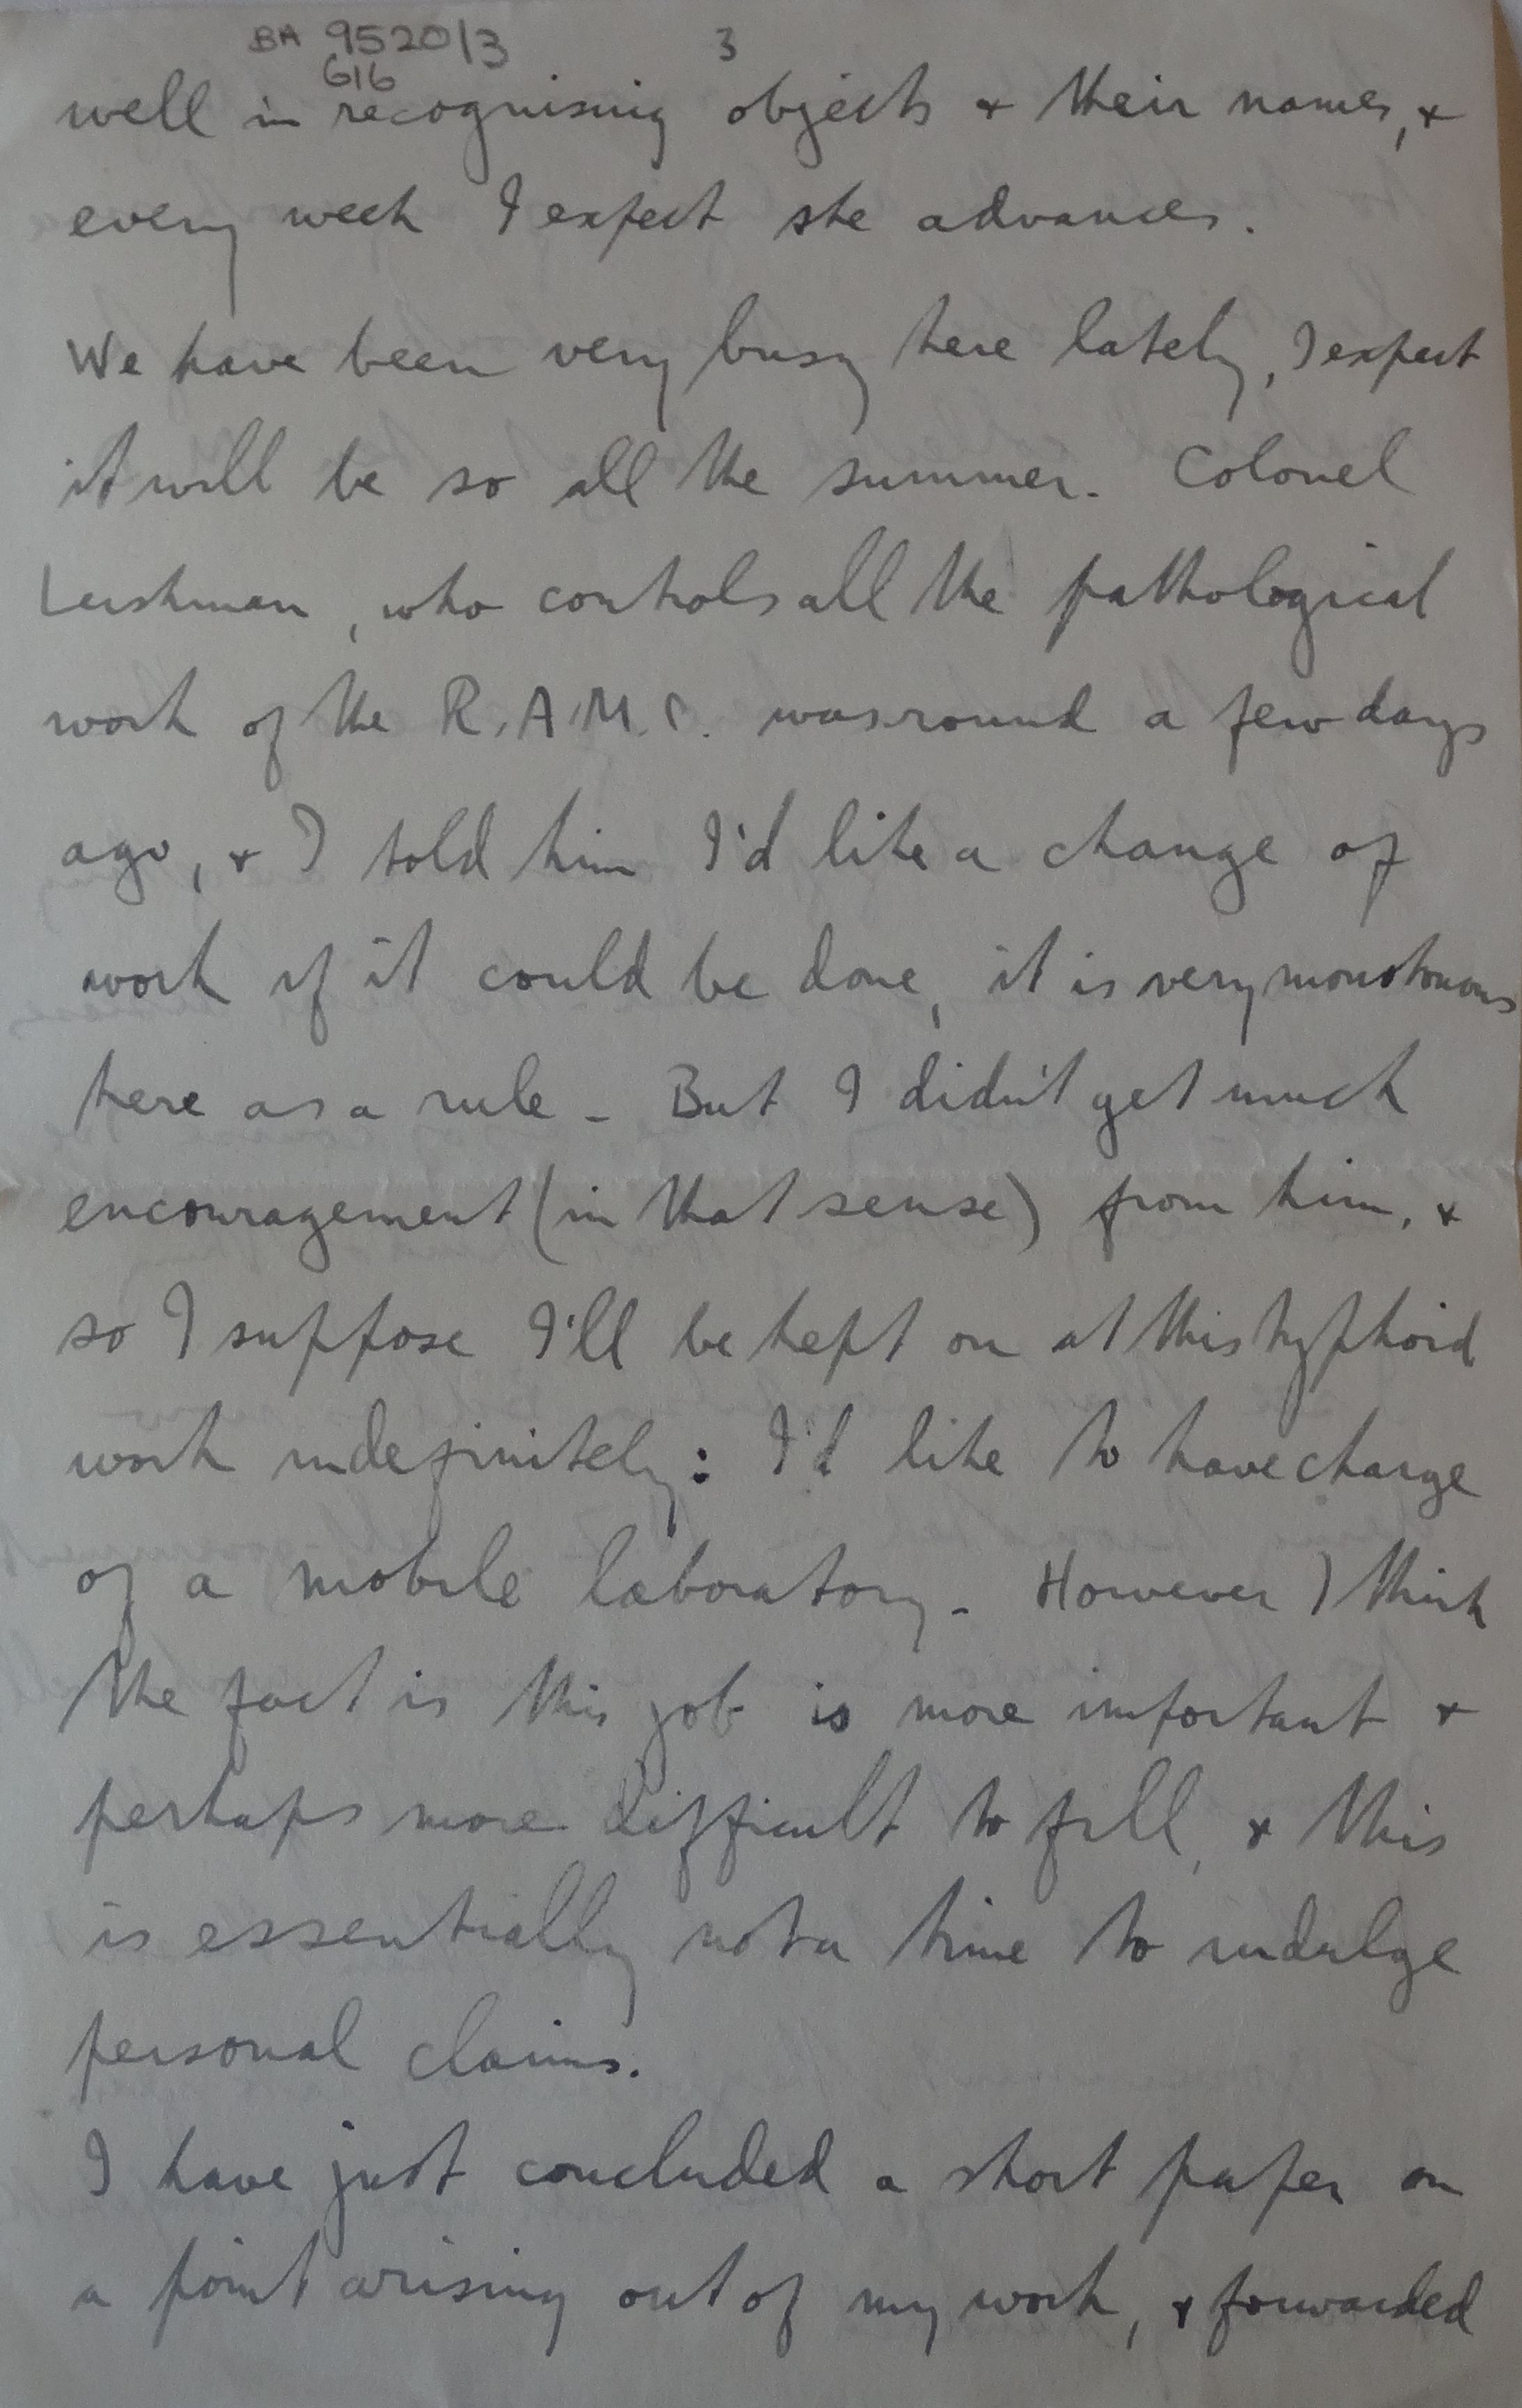 BA 9520/3
616
3
well in recognising objects & their names, &
every week I expect she advances.
We have been very busy here lately, I expect
it will be so all the summer. Colonel
Leishman, who controls all the pathological
work of the R.A.M.C. was round a few days
ago, & I told him I'd like a change of
work if it could be done, it is very monotonous
here as a rule - But I didn't get much
encouragement (in that sense) from him, &
so I suppose I'll be kept on at this typhoid
work indefinitely: I'd like to have charge
of a mobile laboratory - However I think
the fact is this job is more important &
perhaps more difficult to fill, & this
is essentially not a time to indulge
personal claims.
I have just concluded a short paper on
a point arising out of my work, & forwarded